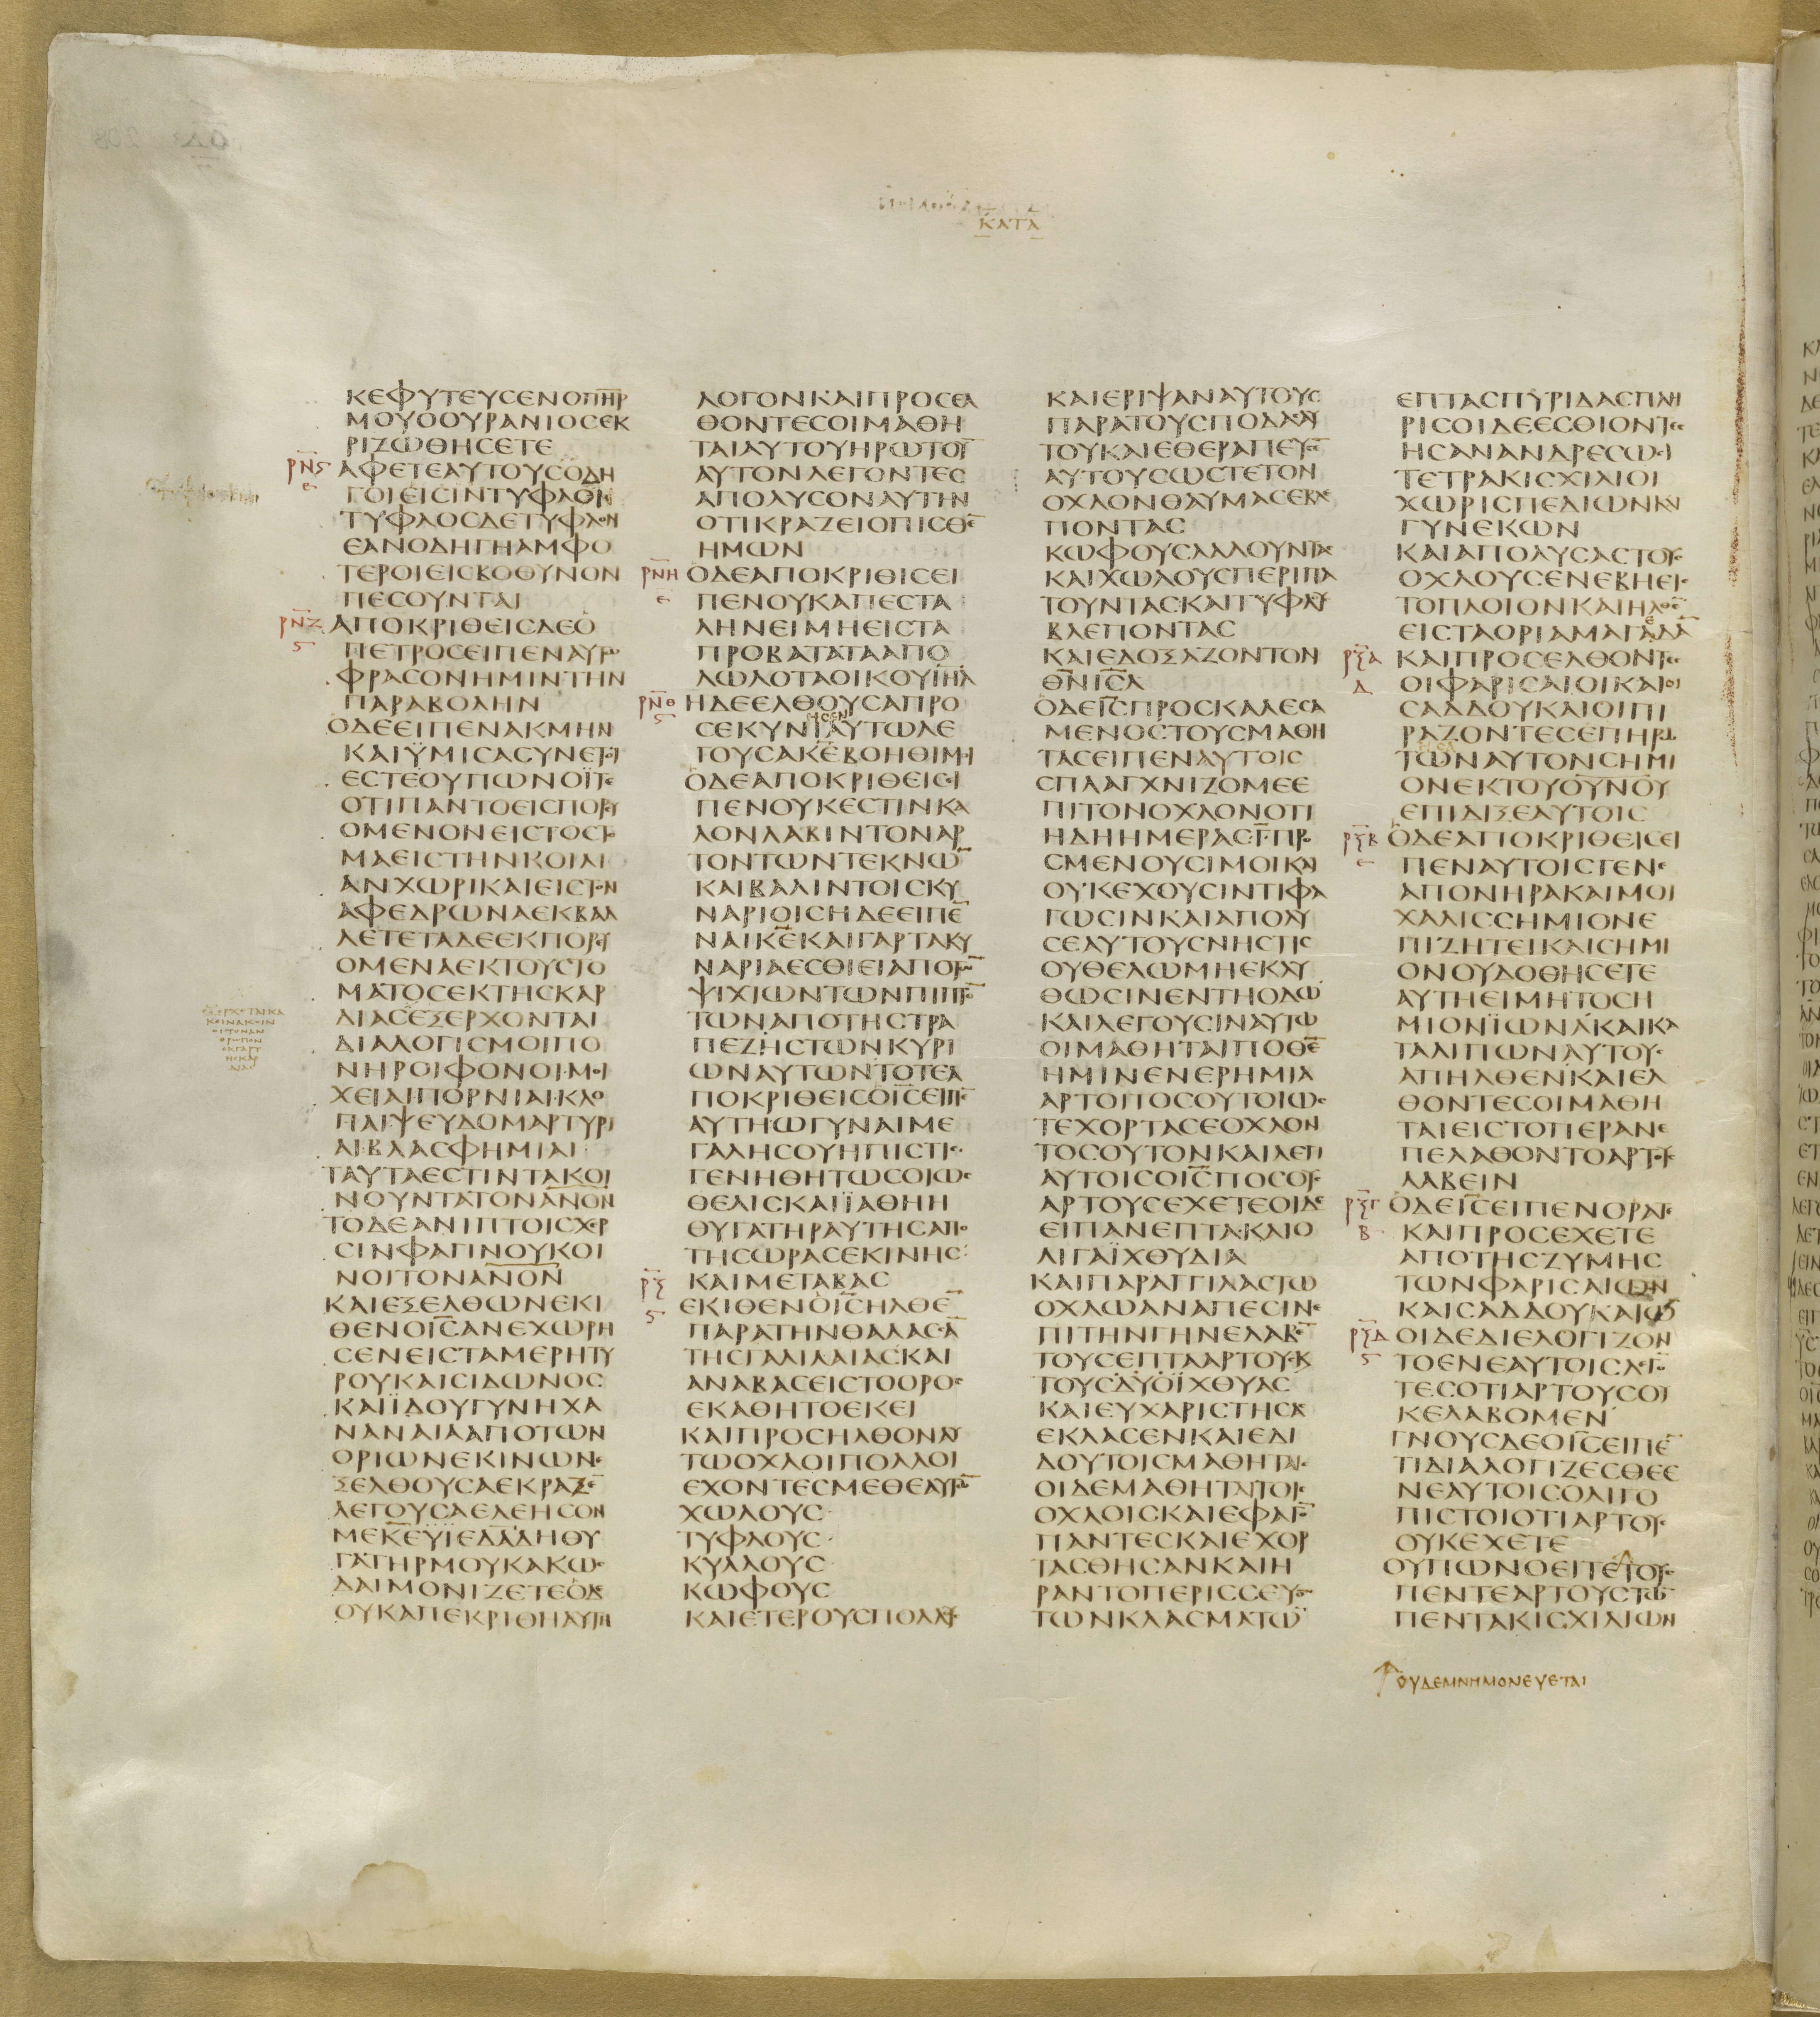 ΚΑΤΑ
ΚΕΦΥΤΕΥCΕΝΟΠΗΡ
ΜΟΥΟΟΥΡΑΝΙΟCΕΚ
ΡΙΖΩΘΗCΕΤΕ
ΡΝϚ ΑΦΕΤΕΑΥΤΟΥCΟΔΗ
Ε ΓΟΙΕΙCΙΝΤΥΦΛΟΙ
ΤΥΦΛΟCΔΕΤΥΦΛΟΝ
ΕΑΝΟΔΗΓΗΑΜΦΟ
ΤΕΡΟΙΕΙCΒΟΘΥΝΟΝ
ΠΕCΟΥΝΤΑΙ
ΡΝΖ ΑΠΟΚΡΙΘΕΙCΔΕΟ
Ϛ ΠΕΤΡΟCΕΙΠΕΝΑΥΤΩ
ΦΡΑCΟΝΗΜΙΝΤΗΝ
ΠΑΡΑΒΟΛΗΝ
ΟΔΕΕΙΠΕΝΑΚΜΗΝ
ΚΑΙΫΜΙCΑCΥΝΕΤΟΙ
ΕCΤΕΟΥΠΩΝΟΪΤΕ
ΟΤΙΠΑΝΤΟΕΙCΠΟΡΥ
ΟΜΕΝΟΝΕΙCΤΟCΤΟ
ΜΑΕΙCΤΗΝΚΟΙΛΙ
ΑΝΧΩΡΙΚΑΙΕΙCΤΟΝ
ΑΦΕΔΡΩΝΑΕΚΒΑΛ
ΛΕΤΕΤΑΔΕΕΚΠΟΡΥ
ΟΜΕΝΑΕΚΤΟΥCΤΟ
ΜΑΤΟCΕΚΤΗCΚΑΡ
ΔΙΑCΕΞΕΡΧΟΝΤΑΙ
ΔΙΑΛΟΓΙCΜΟΙΠΟ
ΝΗΡΟΙΦΟΝΟΙΜΟΙ
ΧΕΙΑΙΠΟΡΝΙΑΙΚΛΟ
ΠΑΙΨΕΥΔΟΜΑΡΤΥΡΙ
ΑΙΒΛΑCΦΗΜΙΑΙ
ΤΑΥΤΑΕCΤΙΝΤΑΚΟΙ
ΝΟΥΝΤΑΤΟΝΑΝΟΝ
ΤΟΔΕΑΝΙΠΤΟΙCΧΕΡ
CΙΝΦΑΓΙΝΟΥΚΟΙ
ΝΟΙΤΟΝΑΝΟΝ
ΚΑΙΕΞΕΛΘΩΝΕΚΙ
ΘΕΝΟΙCΑΝΕΧΩΡΗ
CΕΝΕΙCΤΑΜΕΡΗΤΥ
ΡΟΥΚΑΙCΙΔΩΝΟC
ΚΑΙΪΔΟΥΓΥΝΗΧΑ
ΝΑΝΑΙΑΑΠΟΤΩΝ
ΟΡΙΩΝΕΚΙΝΩΝΕ
ΞΕΛΘΟΥCΑΕΚΡΑΖΕ
ΛΕΓΟΥCΑΕΛΕΗCΟΝ
ΜΕΚΕΥΪΕΔΑΔΗΘΥ
ΓΑΤΗΡΜΟΥΚΑΚΩC
ΔΑΙΜΟΝΙΖΕΤΕΟΔΕ
ΟΥΚΑΠΕΚΡΙΘΗΑΥΤΗ
ΛΟΓΟΝΚΑΙΠΡΟCΕΛ
ΘΟΝΤΕCΟΙΜΑΘΗ
ΤΑΙΑΥΤΟΥΗΡΩΤΟΥ
ΑΥΤΟΝΛΕΓΟΝΤΕC
ΑΠΟΛΥCΟΝΑΥΤΗΝ
ΟΤΙΚΡΑΖΕΙΟΠΙCΘΕ
ΗΜΩΝ
ΡΝΗ ΟΔΕΑΠΟΚΡΙΘΙCΕΙ
Ε ΠΕΝΟΥΚΑΠΕCΤΑ
ΛΗΝΕΙΜΗΕΙCΤΑ
ΠΡΟΒΑΤΑΤΑΑΠΟ
ΛΩΛΟΤΑΟΙΚΟΥΪΗΛ
ΡΝΘ ΗΔΕΕΛΘΟΥCΑΠΡΟ
Ϛ CΕΚΥΝΙΑΥΤΩΛΕ
ΓΟΥCΑΚΕΒΟΗΘΙΜΟΙ
ΟΔΕΑΠΟΚΡΙΘΕΙCΕΙ
ΠΕΝΟΥΚΕCΤΙΝΚΑ
ΛΟΝΛΑΒΙΝΤΟΝΑΡ
ΤΟΝΤΩΝΤΕΚΝΩ
ΚΑΙΒΑΛΙΝΤΟΙCΚΥ
ΝΑΡΙΟΙCΗΔΕΕΙΠΕ
ΝΑΙΚΕΚΑΙΓΑΡΤΑΚΥ
ΝΑΡΙΑΕCΘΙΕΙΑΠΟΤΩ
ΨΙΧΙΩΝΤΩΝΠΙΠΤΟ
ΤΩΝΑΠΟΤΗCΤΡΑ
ΠΕΖΗCΤΩΝΚΥΡΙ
ΩΝΑΥΤΩΝΤΟΤΕΑ
ΠΟΚΡΙΘΕΙCΟΙCΕΙΠΕ
ΑΥΤΗΩΓΥΝΑΙΜΕ
ΓΑΛΗCΟΥΗΠΙCΤΙC
ΓΕΝΗΘΗΤΩCΟΙΩC
ΘΕΛΙCΚΑΙΪΑΘΗΗ
ΘΥΓΑΤΗΡΑΥΤΗCΑΠΟ
ΤΗCΩΡΑCΕΚΙΝΗC
ΡΞ ΚΑΙΜΕΤΑΒΑC
Ϛ ΕΚΙΘΕΝΟΙCΗΛΘΕ
ΠΑΡΑΤΗΝΘΑΛΑCCΑ
ΤΗCΓΑΛΙΛΑΙΑCΚΑΙ
ΑΝΑΒΑCΕΙCΤΟΟΡΟC
ΕΚΑΘΗΤΟΕΚΕΙ
ΚΑΙΠΡΟCΗΛΘΟΝΑΥ
ΤΩΟΧΛΟΙΠΟΛΛΟΙ
ΕΧΟΝΤΕCΜΕΘΕΑΥΤΩ
ΧΩΛΟΥC
ΤΥΦΛΟΥC
ΚΥΛΛΟΥC
ΚΩΦΟΥC
ΚΑΙΕΤΕΡΟΥCΠΟΛΛΟΥC
ΚΑΙΕΡΙΨΑΝΑΥΤΟΥC
ΠΑΡΑΤΟΥCΠΟΔΑCΑΥ
ΤΟΥΚΑΙΕΘΕΡΑΠΕΥCΕ
ΑΥΤΟΥCΩCΤΕΤΟΝ
ΟΧΛΟΝΘΑΥΜΑCΕΒΛΕ
ΠΟΝΤΑC
ΚΩΦΟΥCΛΑΛΟΥΝΤΑC
ΚΑΙΧΩΛΟΥCΠΕΡΙΠΑ
ΤΟΥΝΤΑCΚΑΙΤΥΦΛΟΥC
ΒΛΕΠΟΝΤΑC
ΚΑΙΕΔΟΞΑΖΟΝΤΟΝ
ΘΝΙCΛ
ΟΔΕΙCΠΡΟCΚΑΛΕCΑ
ΜΕΝΟCΤΟΥCΜΑΘΗ
ΤΑCΕΙΠΕΝΑΥΤΟΙC
CΠΛΑΓΧΝΙΖΟΜΕΕ
ΠΙΤΟΝΟΧΛΟΝΟΤΙ
ΗΔΗΗΜΕΡΑCΓΠΡΟ
CΜΕΝΟΥCΙΜΟΙΚΑΙ
ΟΥΚΕΧΟΥCΙΝΤΙΦΑ
ΓΩCΙΝΚΑΙΑΠΟΛΥ
CΕΑΥΤΟΥCΝΗCΤΙC
ΟΥΘΕΛΩΜΗΕΚΛΥ
ΘΩCΙΝΕΝΤΗΟΔΩ
ΚΑΙΛΕΓΟΥCΙΝΑΥΤΩ
ΟΙΜΑΘΗΤΑΙΠΟΘΕ
ΗΜΙΝΕΝΕΡΗΜΙΑ
ΑΡΤΟΙΤΟCΟΥΤΟΙΩC
ΤΕΧΟΡΤΑCΕΟΧΛΟΝ
ΤΟCΟΥΤΟΝΚΑΙΛΕΓΙ
ΑΥΤΟΙCΟΙCΠΟCΟΥC
ΑΡΤΟΥCΕΧΕΤΕΟΙΔΕ
ΕΙΠΑΝΕΠΤΑΚΑΙΟ
ΛΙΓΑΪΧΘΥΔΙΑ
ΚΑΙΠΑΡΑΓΓΙΛΑCΤΩ
ΟΧΛΩΑΝΑΠΕCΙΝΕ
ΠΙΤΗΝΓΗΝΕΛΑΒΕ
ΤΟΥCΕΠΤΑΑΡΤΟΥCΚ
ΤΟΥCΔΥΟΪΧΘΥΑC
ΚΑΙΕΥΧΑΡΙCΤΗCΑC
ΕΚΛΑCΕΝΚΑΙΕΔΙ
ΔΟΥΤΟΙCΜΑΘΗΤΑΙC
ΟΙΔΕΜΑΘΗΤΑΙΤΟΙC
ΟΧΛΟΙCΚΑΙΕΦΑΓΟ
ΠΑΝΤΕCΚΑΙΕΧΟΡ
ΤΑCΘΗCΑΝΚΑΙΗ
ΡΑΝΤΟΠΕΡΙCCΕΥΟΝ
ΤΩΝΚΛΑCΜΑΤΩ
ΕΠΤΑCΠΥΡΙΔΑCΠΛΗ
ΡΙCΟΙΔΕΕCΘΙΟΝΤΕC
ΗCΑΝΑΝΔΡΕCΩCΙ
ΤΕΤΡΑΚΙCΧΙΛΙΟΙ
ΧΩΡΙCΠΕΔΙΩΝΚΑΙ
ΓΥΝΕΚΩΝ
ΚΑΙΑΠΟΛΥCΑCΤΟΥC
ΟΧΛΟΥCΕΝΕΒΗΕΙC
ΤΟΠΛΟΙΟΝΚΑΙΗΛΘΕ
ΕΙCΤΑΟΡΙΑΜΑΓΑΔΑ
ΡΞΑ ΚΑΙΠΡΟCΕΛΘΟΝΤΕC
Δ ΟΙΦΑΡΙCΑΙΟΙΚΑΙΟΙ
CΑΔΔΟΥΚΑΙΟΙΠΙ
ΡΑΖΟΝΤΕCΕΠΗΡΩ
ΤΩΝΑΥΤΟΝCΗΜΙ
ΟΝΕΚΤΟΥΟΥΝΟΥ
ΕΠΙΔΙΞΕΑΥΤΟΙC
ΡΞΒ ΟΔΕΑΠΟΚΡΙΘΕΙCΕΙ
Ε ΠΕΝΑΥΤΟΙCΓΕΝΕ
ΑΠΟΝΗΡΑΚΑΙΜΟΙ
ΧΑΛΙCCΗΜΙΟΝΕ
ΠΙΖΗΤΕΙΚΑΙCΗΜΙ
ΟΝΟΥΔΟΘΗCΕΤΕ
ΑΥΤΗΕΙΜΗΤΟCΗ
ΜΙΟΝΪΩΝΑΚΑΙΚΑ
ΤΑΛΙΠΩΝΑΥΤΟΥC
ΑΠΗΛΘΕΝΚΑΙΕΛ
ΘΟΝΤΕCΟΙΜΑΘΗ
ΤΑΙΕΙCΤΟΠΕΡΑΝΕ
ΠΕΛΑΘΟΝΤΟΑΡΤΟΥC
ΛΑΒΕΙΝ
ΡΞΓ ΟΔΕΙCΕΙΠΕΝΟΡΑΤΕ
Β ΚΑΙΠΡΟCΕΧΕΤΕ
ΑΠΟΤΗCΖΥΜΗC
ΤΩΝΦΑΡΙCΑΙΩΝ
ΚΑΙCΑΔΔΟΥΚΑΙΩ
ΡΞΔ ΟΙΔΕΔΙΕΛΟΓΙΖΟΝ
Ϛ ΤΟΕΝΕΑΥΤΟΙCΛΕΓΟ
ΤΕCΟΤΙΑΡΤΟΥCΟΥ
ΚΕΛΑΒΟΜΕΝ
ΓΝΟΥCΔΕΟΙCΕΙΠΕ
ΤΙΔΙΑΛΟΓΙΖΕCΘΕΕ
ΝΕΑΥΤΟΙCΟΛΙΓΟ
ΠΙCΤΟΙΟΤΙΑΡΤΟΥC
ΟΥΚΕΧΕΤΕ
ΟΥΠΩΝΟΕΙΤΕΤΟΥC
ΠΕΝΤΕΑΡΤΟΥCΤΩ
ΠΕΝΤΑΚΙCΧΙΛΙΩΝ
ΟΥΔΕΜΝΗΜΟΝΕΥΕΤΑΙ